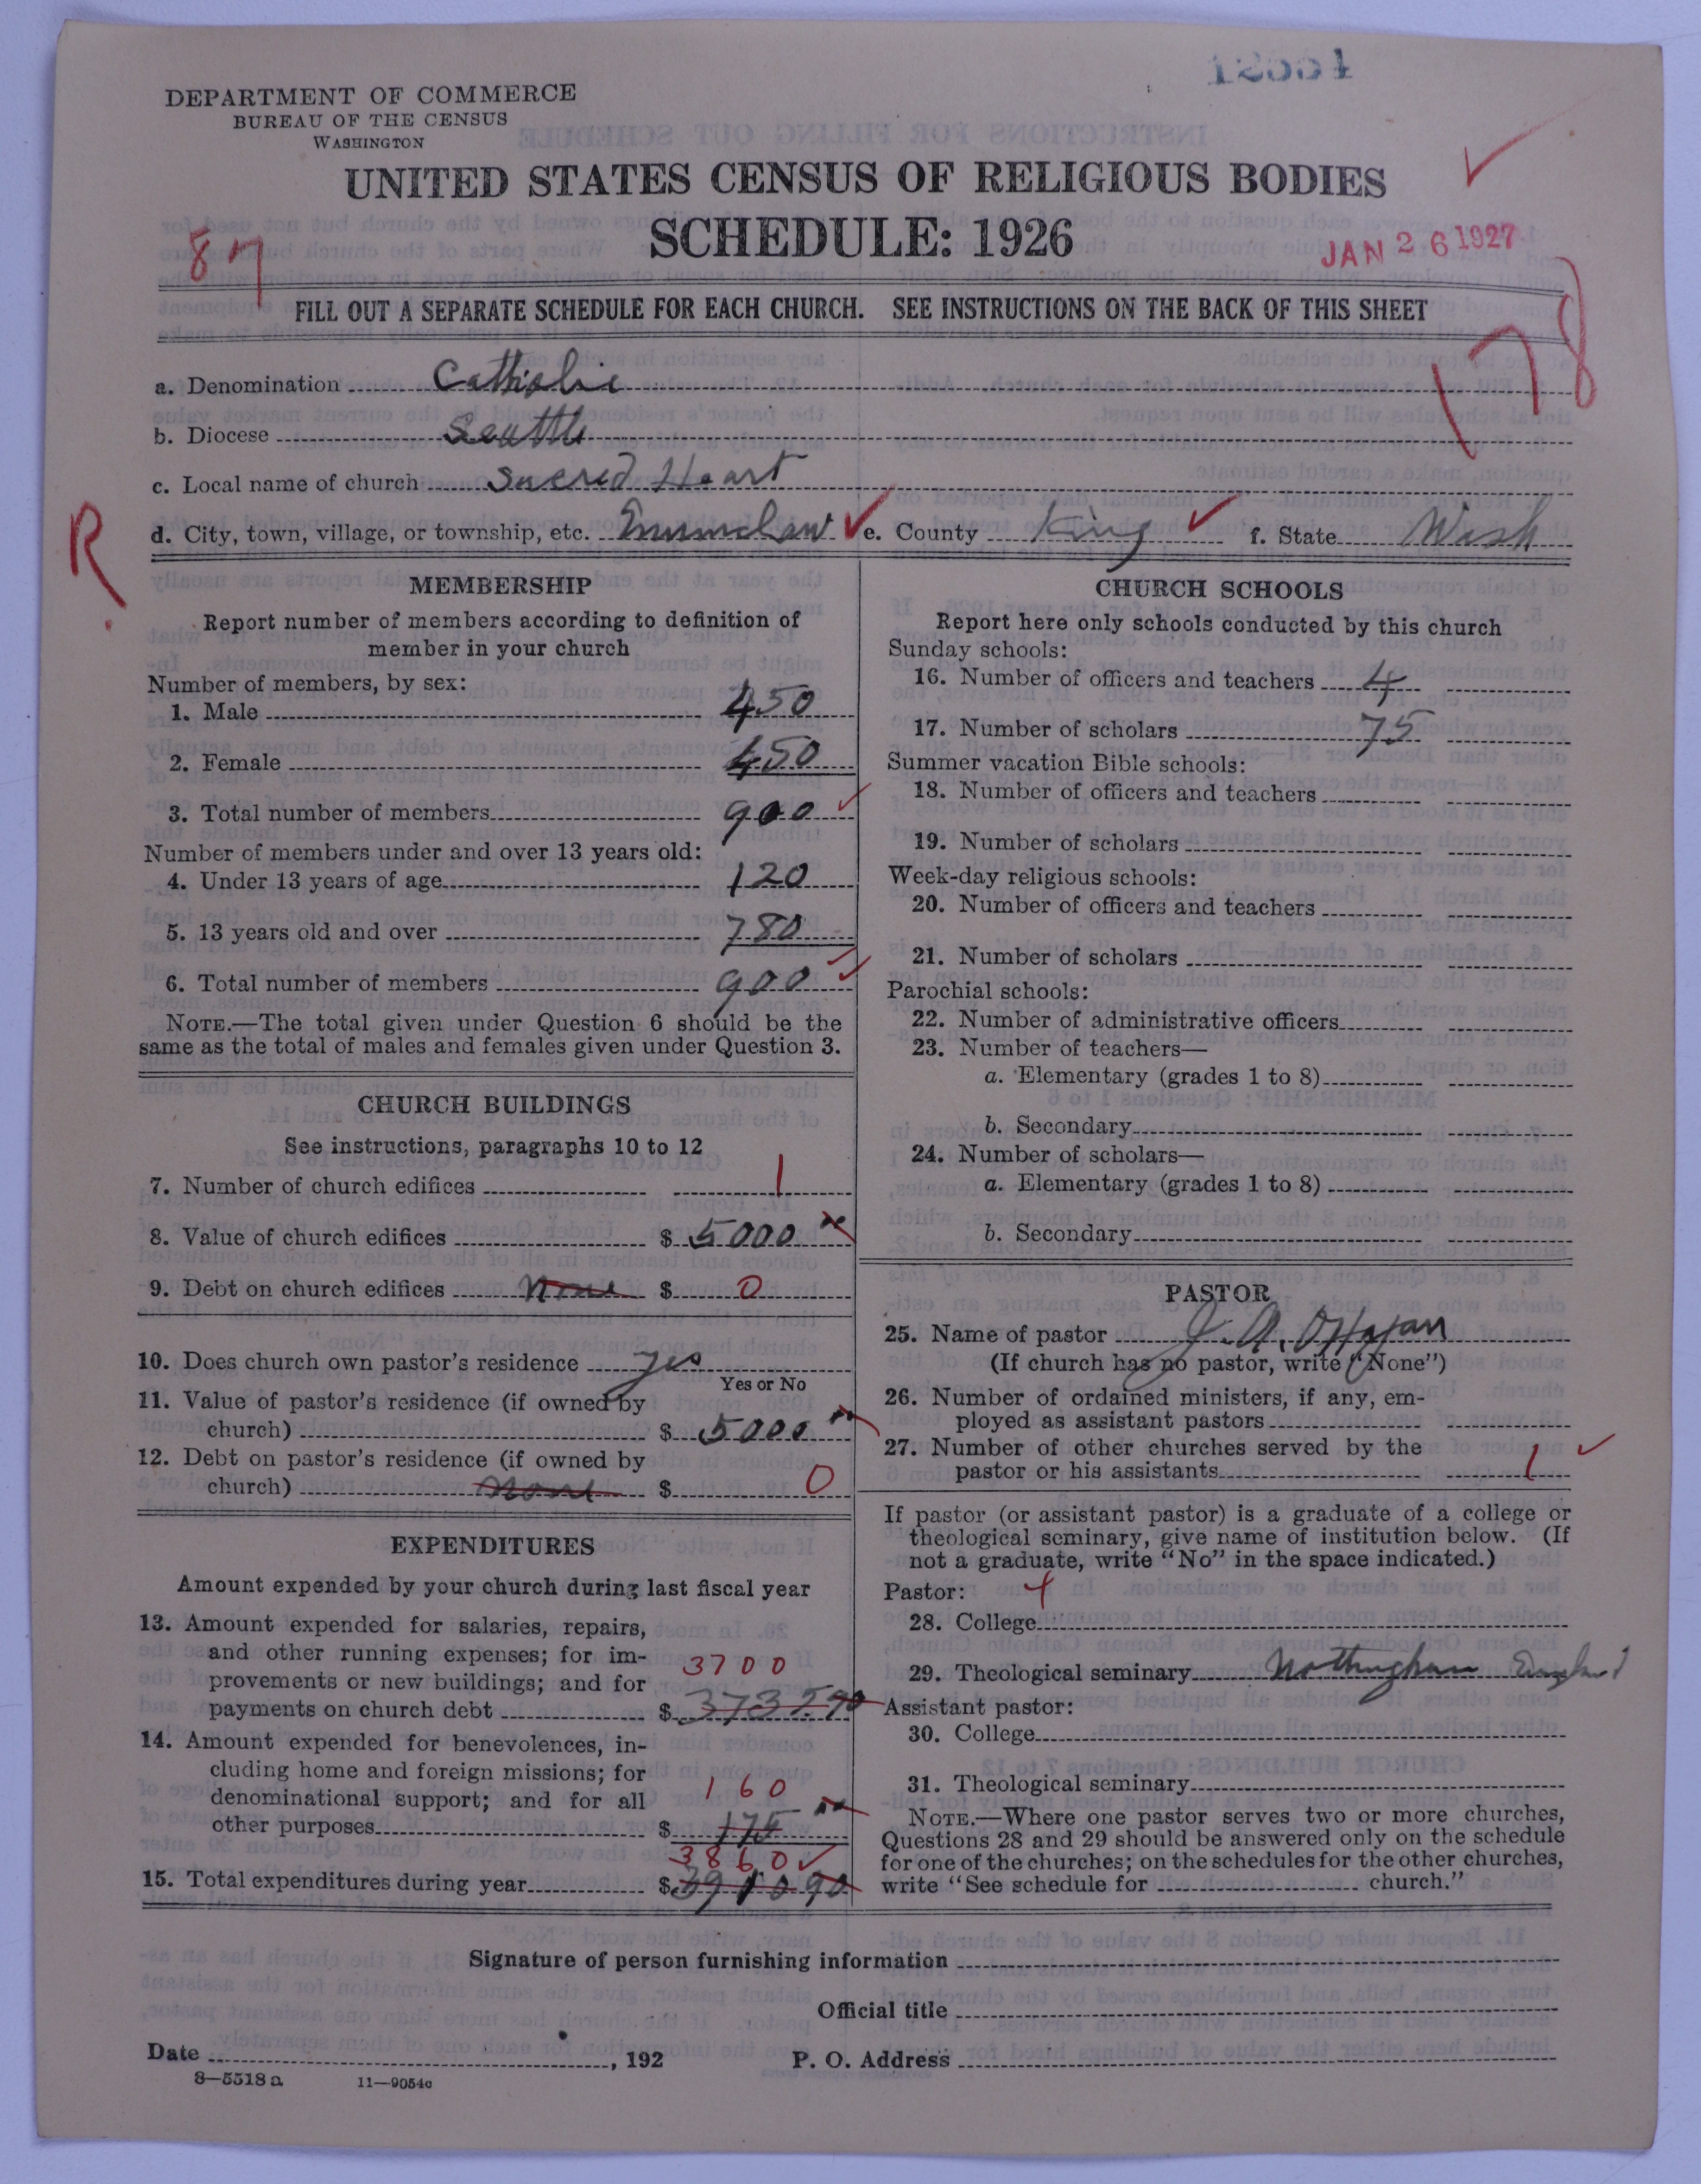 DEPARTMENT OF COMMERCE
BUREAU OF THE CENSUS
WASHINGTON
UNITED STATES CENSUS OF RELIGIOUS BODIES
SCHEDULE: 1926
87
JAN 26 1927
FILL OUT A SEPARATE SCHEDULE FOR EACH CHURCH. SEE INSTRUCTIONS ON THE BACK OF THIS SHEET
178
a. Denomination Catholic
b. Diocese Seattle
c. Local name of church Sacred Heart
R
d. City, town, village, or township, etc. Enumclaw e. County King f. State Wash
MEMBERSHIP
Report number of members according to definition of
member in your church
Number of members, by sex:
1. Male 450
2. Female 450
3. Total number of members 900
Number of members under and over 13 years old:
4. Under 13 years of age 120
5. 13 years old and over 780
6. Total number of members 900
NOTE.—The total given under Question 6 should be the
same as the total of males and females given under Question 3.
CHURCH BUILDINGS
See instructions, paragraphs 10 to 12
7. Number of church edifices 1
8. Value of church edifices $ 5000
9. Debt on church edifices None $ 0
10. Does church own pastor's residence yes
Yes or No
11. Value of pastor's residence (if owned by
church) $ 5000
12. Debt on pastor's residence (if owned by
church) None $ 0
EXPENDITURES
Amount expended by your church during last fiscal year
13. Amount expended for salaries, repairs,
and other running expenses; for im-
provements or new buildings; and for
3700
payments on church debt $ 3735.90
14. Amount expended for benevolences, in-
cluding home and foreign missions; for
denominational support; and for all
160
other purposes $ 175
3860
15. Total expenditures during year $ 3910 90
CHURCH SCHOOLS
Report here only schools conducted by this church
Sunday schools:
16. Number of officers and teachers 4
17. Number of scholars 75
Summer vacation Bible schools:
18. Number of officers and teachers
19. Number of scholars
Week-day religious schools:
20. Number of officers and teachers
21. Number of scholars
Parochial schools:
22. Number of administrative officers
23. Number of teachers—
a. Elementary (grades 1 to 8)
b. Secondary
24. Number of scholars—
a. Elementary (grades 1 to 8)
b. Secondary
PASTOR
25. Name of pastor J. A.
(If church has no pastor, write "None")
26. Number of ordained ministers, if any, em-
ployed as assistant pastors
27. Number of other churches served by the
pastor or his assistants 1
If pastor (or assistant pastor) is a graduate of a college or
theological seminary, give name of institution below. (If
not a graduate, write "No" in the space indicated.)
Pastor:
28. College
29. Theological seminary Nottingham England
Assistant pastor:
30. College
31. Theological seminary
NOTE.—Where one pastor serves two or more churches,
Questions 28 and 29 should be answered only on the schedule
for one of the churches; on the schedules for the other churches,
write "See schedule for church."
Signature of person furnishing information
Official title
Date , 192
P. O. Address
8—5518 a 11—9054c